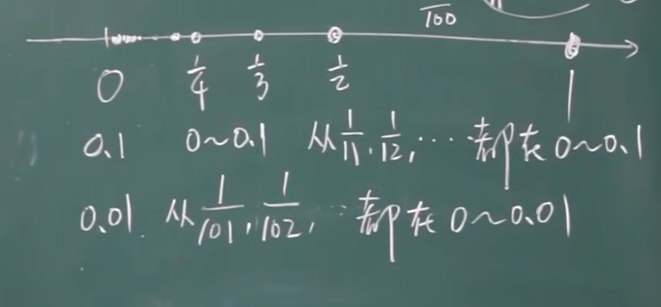 1/100
0 1/4 1/3 1/2 1
0.1 0~0.1 从1/11, 1/12, … 都在0~0.1
0.01. 从1/101, 1/102, … 都在0~0.01